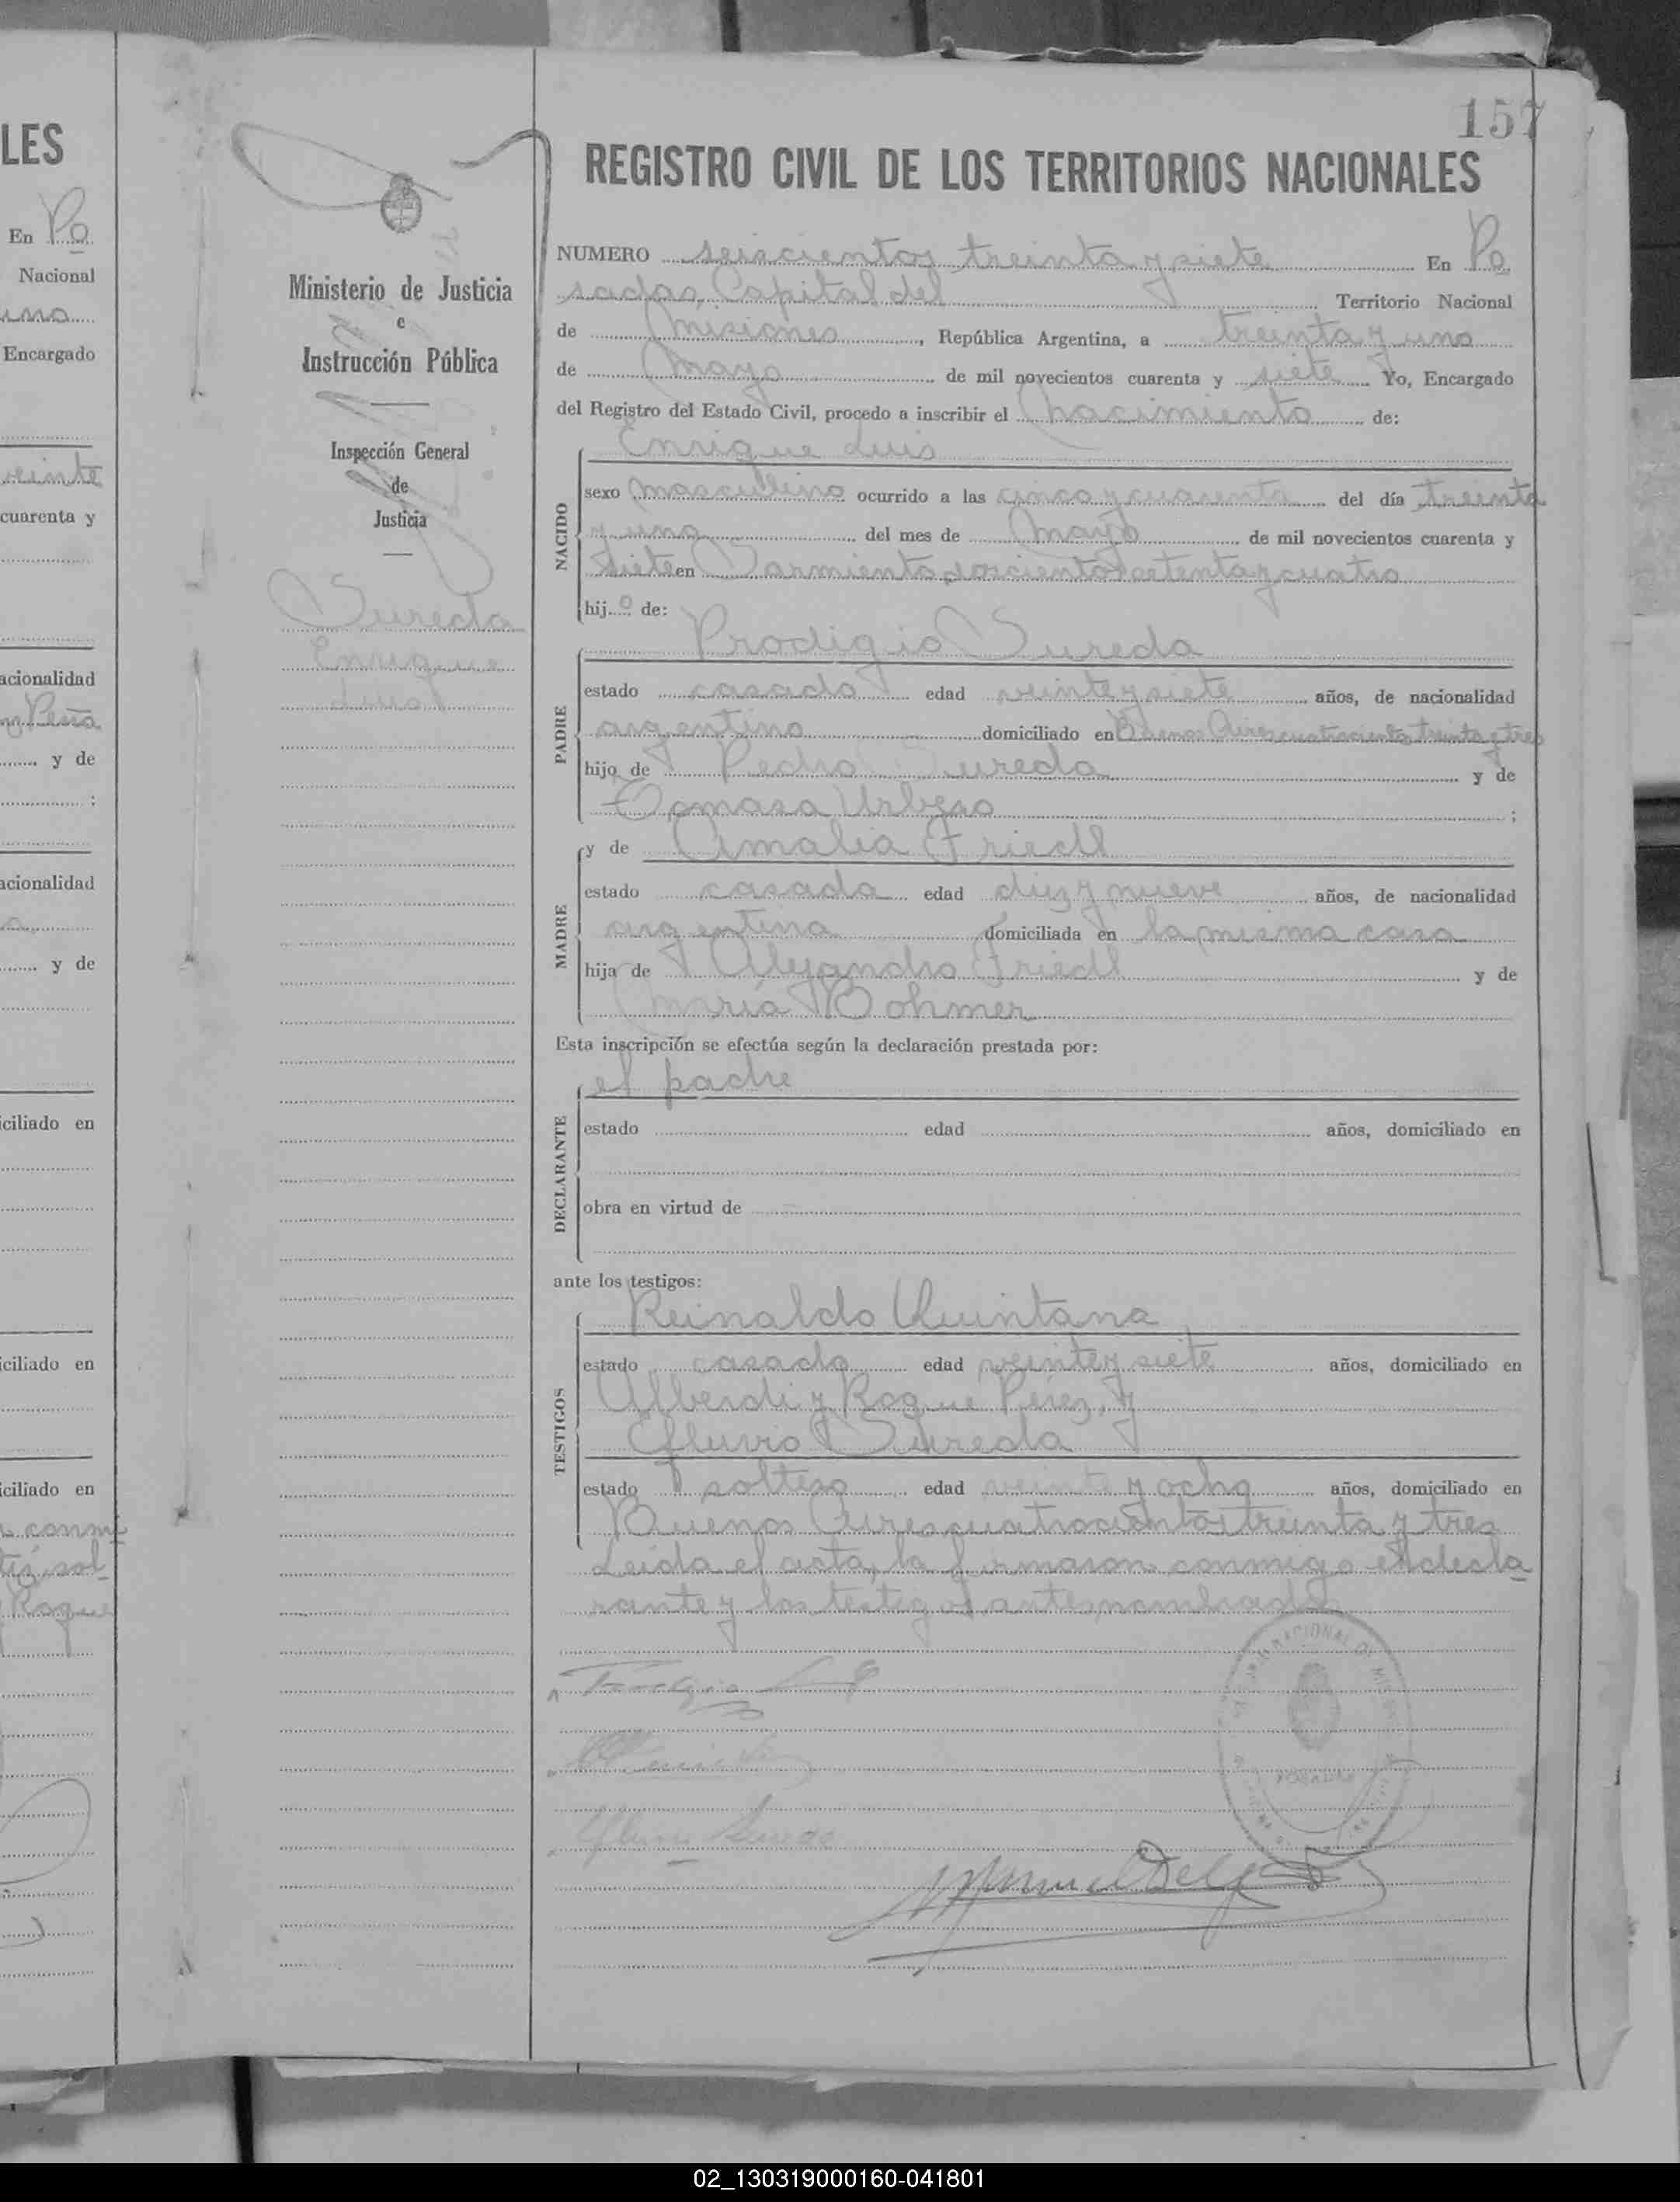 LES
En Po
Nacional
uno
Encargado
veinte
cuarenta y
acionalidad
Peña
y de
;
acionalidad
y de
iciliado en
iciliado en
iciliado en
conmi
sol-
Roque
157
Ministerio de Justicia
e
Instrucción Pública
Inspección General
de
Justicia
Sureda
Enrique
Luis
REGISTRO CIVIL DE LOS TERRITORIOS NACIONALES
NUMERO seiscientos treinta y siete En Po
sadas, Capital del Territorio Nacional
de Misiones, República Argentina, a treinta y uno
de Mayo de mil novecientos cuarenta y siete Yo, Encargado
del Registro del Estado Civil, procedo a inscribir el nacimiento de:
Enrique Luis
NACIDO
sexo masculino ocurrido a las cinco y cuarenta del día treinta
y uno del mes de Mayo de mil novecientos cuarenta y
siete en Sarmiento setenta y cuatro
hijo de:
Prodigio Sureda
PADRE
estado casado edad veinte y siete años, de nacionalidad
argentino domiciliado en Buenos Aires cuatrocientos treinta y tres
hijo de Pedro Sureda y de
Tomasa ;
y de Amalia Friedl
MADRE
estado casada edad diez y nueve años, de nacionalidad
argentina domiciliada en la misma casa
hija de Alejandro Friedl y de
María Bohmer
Esta inscripción se efectúa según la declaración prestada por:
el padre
DECLARANTE
estado edad años, domiciliado en
obra en virtud de
ante los testigos:
Reinaldo Quintana
TESTIGOS
estado casado edad veinte y siete años, domiciliado en
Alberdi y Roque Pérez, y
Efluvio Sureda
estado soltero edad veinte y ocho años, domiciliado en
Buenos Aires cuatrocientos treinta y tres
Leida el acta, la firmaron conmigo el decla-
rante y los testigos antes nombrados
POSADAS
02_130319000160-041801